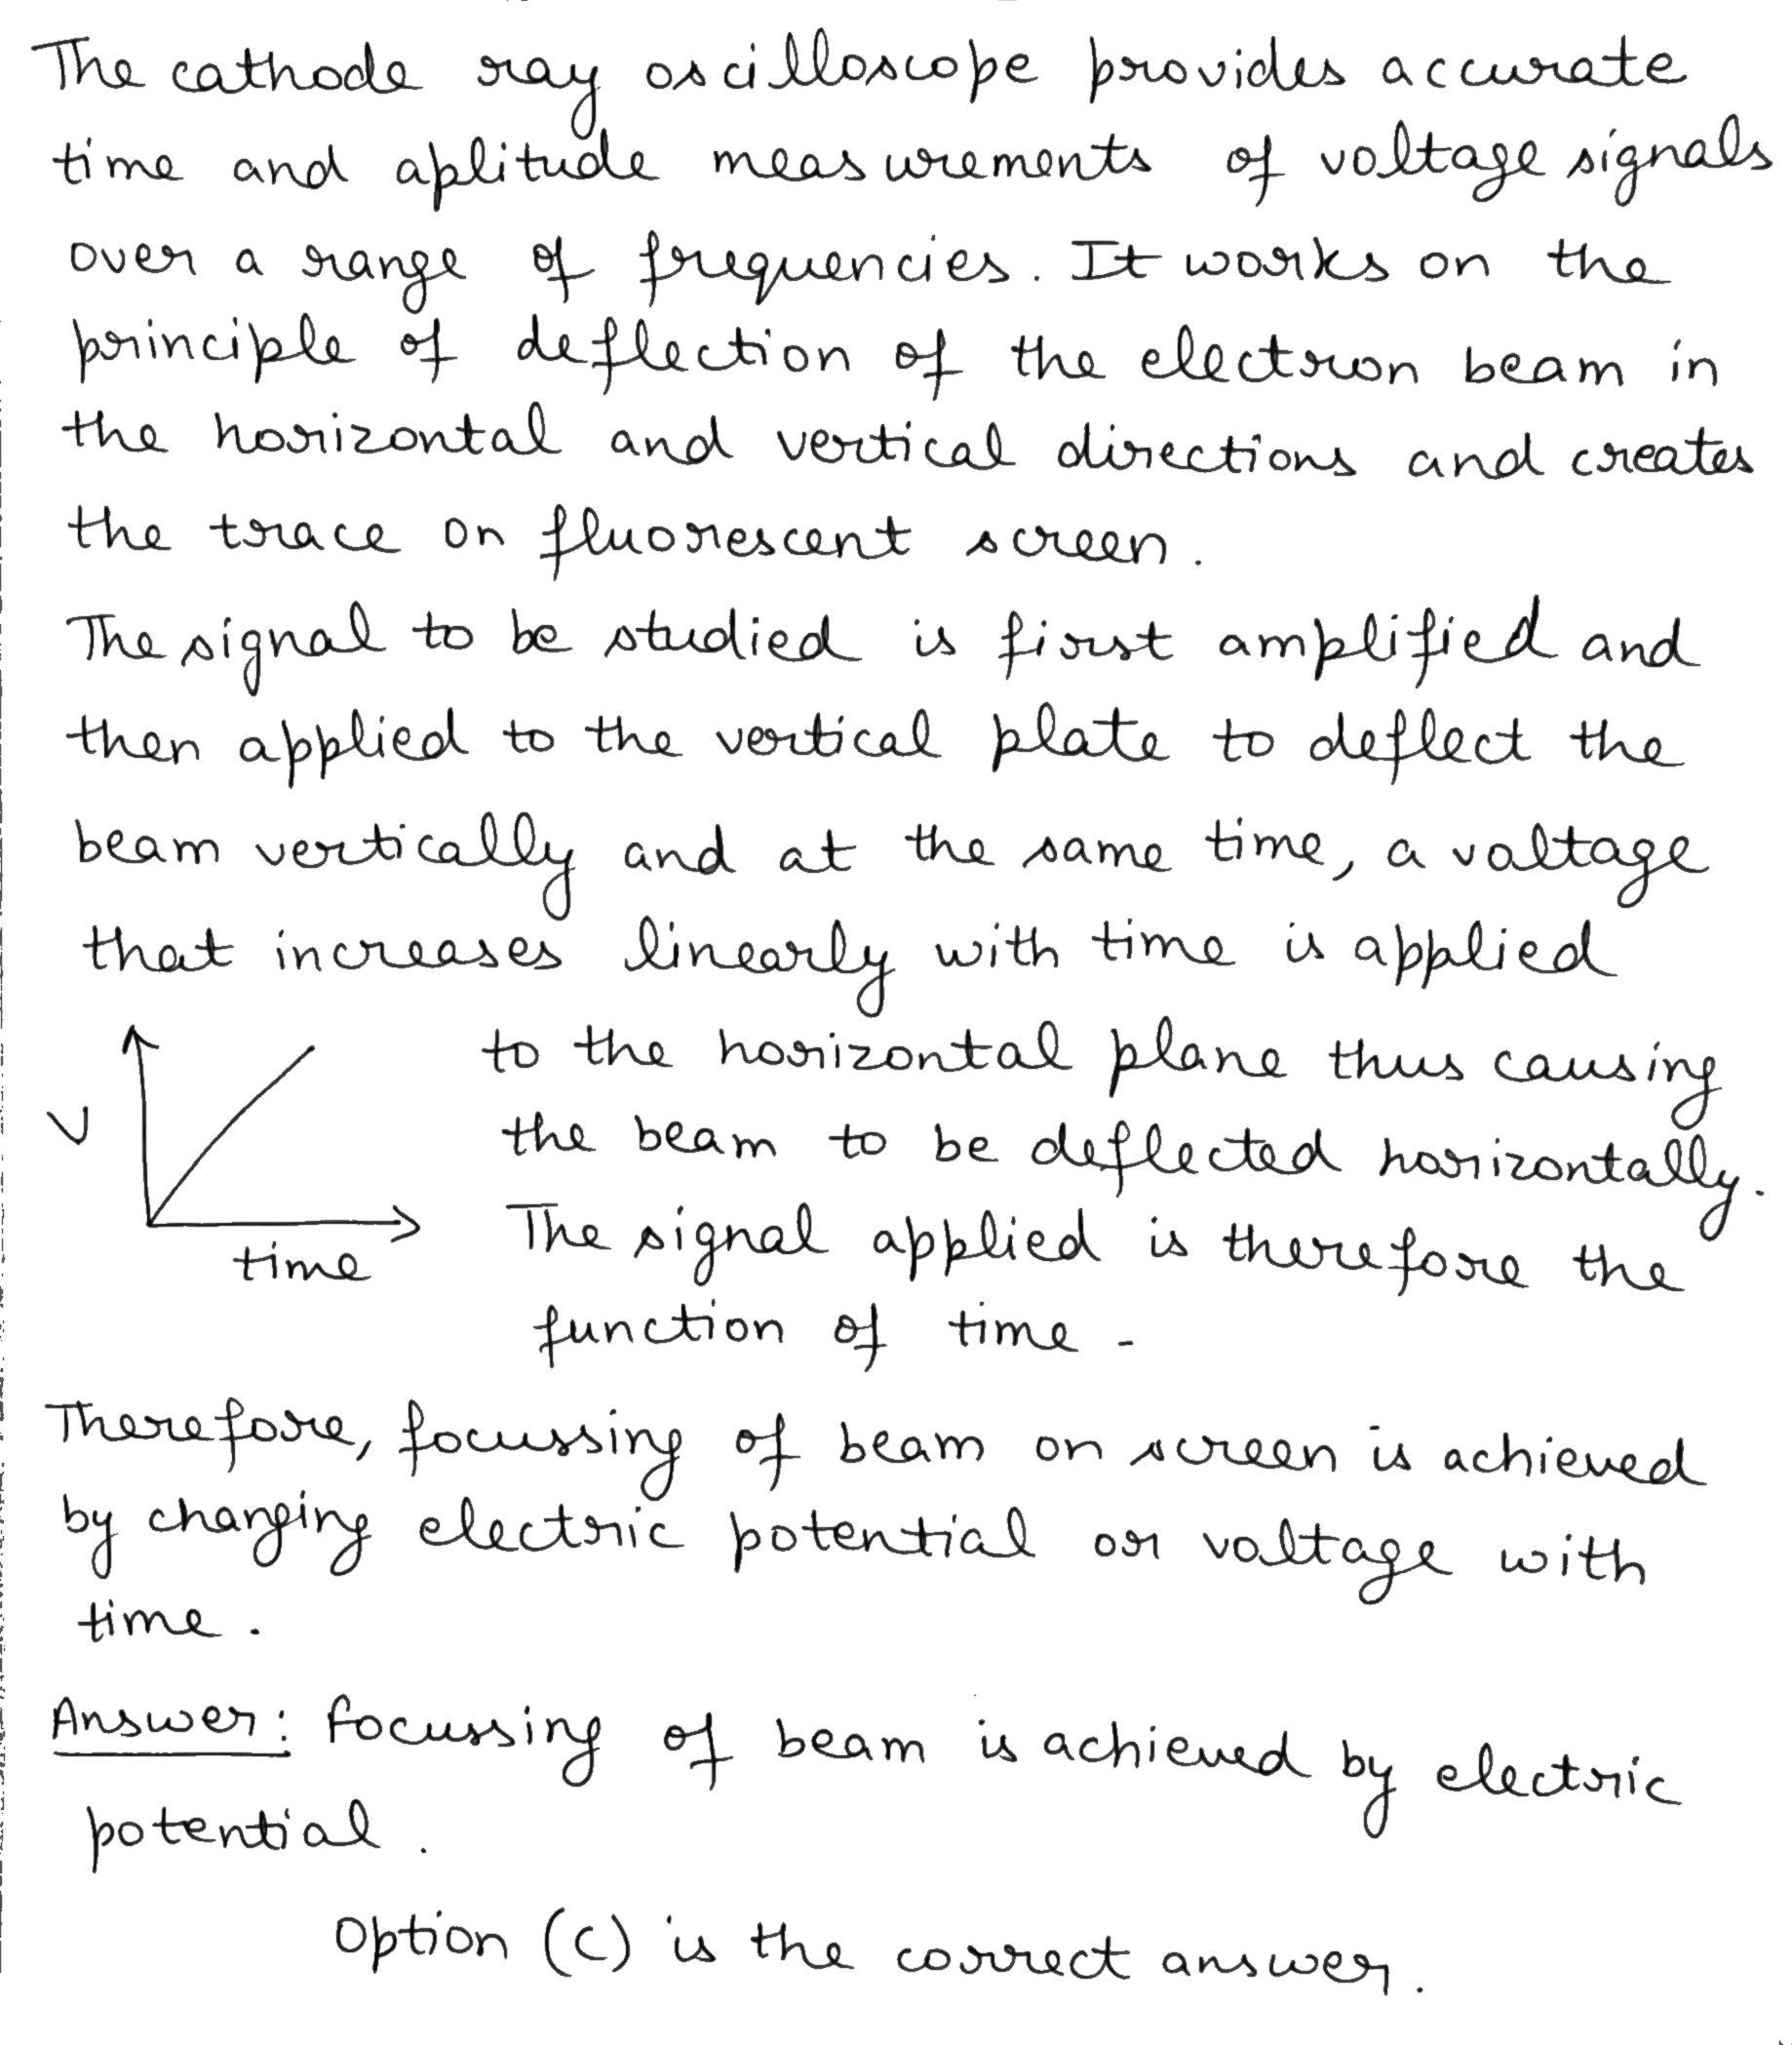 The cathode ray oscilloscope provides accurate
time and aplitude measurements of voltage signals
over a range of frequencies. It works on the
principle of deflection of the electron beam in
the horizontal and vertical directions and creates
the trace on fluorescent screen.
The signal to be studied is first amplified and
then applied to the vertical plate to deflect the
beam vertically and at the same time, a voltage
that increases linearly with time is applied
to the horizontal plane thus causing
the beam to be deflected horizontally.
The signal applied is therefore the
function of time -
V
time
Therefore, focussing of beam on screen is achieved
by changing electric potential or voltage with
time.
Answer: focussing of beam is achieved by electric
potential.
Option (C) is the correct answer.